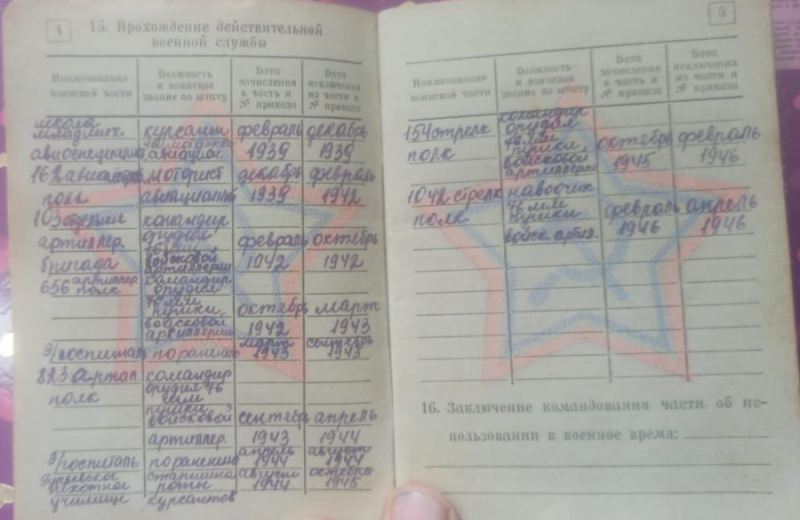 4
15. Прохождение действительной
военной службы
Наименование воинской части
Должность и воинское звание по штату
Дата зачисления в часть и № приказа
Дата исключения из части и № приказа
школа младших авиаспециал. курсант февраль 1939 декабрь 1939
162 полк моторист авиации декабрь 1939 февраль 1942
103 артиллер. бригада командир орудия войсковой артиллерии февраль 1942 октябрь 1942
656 артиллер. полк командир орудия 76 мм пушки войсковой артиллерии октябрь 1942 март 1943
э/госпиталь по ранению март 1943 сентябрь 1943
823 артп. полк командир орудия 76 мм пушки войсковой артиллер. сентябрь 1943 апрель 1944
э/госпиталь по ранению апрель 1944 август 1944
пехотное училище старшина роты курсантов август 1944 октябрь 1945
5
Наименование воинской части
Должность и воинское звание по штату
Дата зачисления в часть и № приказа
Дата исключения из части и № приказа
154 стрелк полк командир орудия 76 мм пушки войсковой артиллерии октябрь 1945 февраль 1946
1042 стрелк полк наводчик 76 мм пушки войск. артил. февраль 1946 апрель 1946
16. Заключение командования части об ис-
пользовании в военное время: